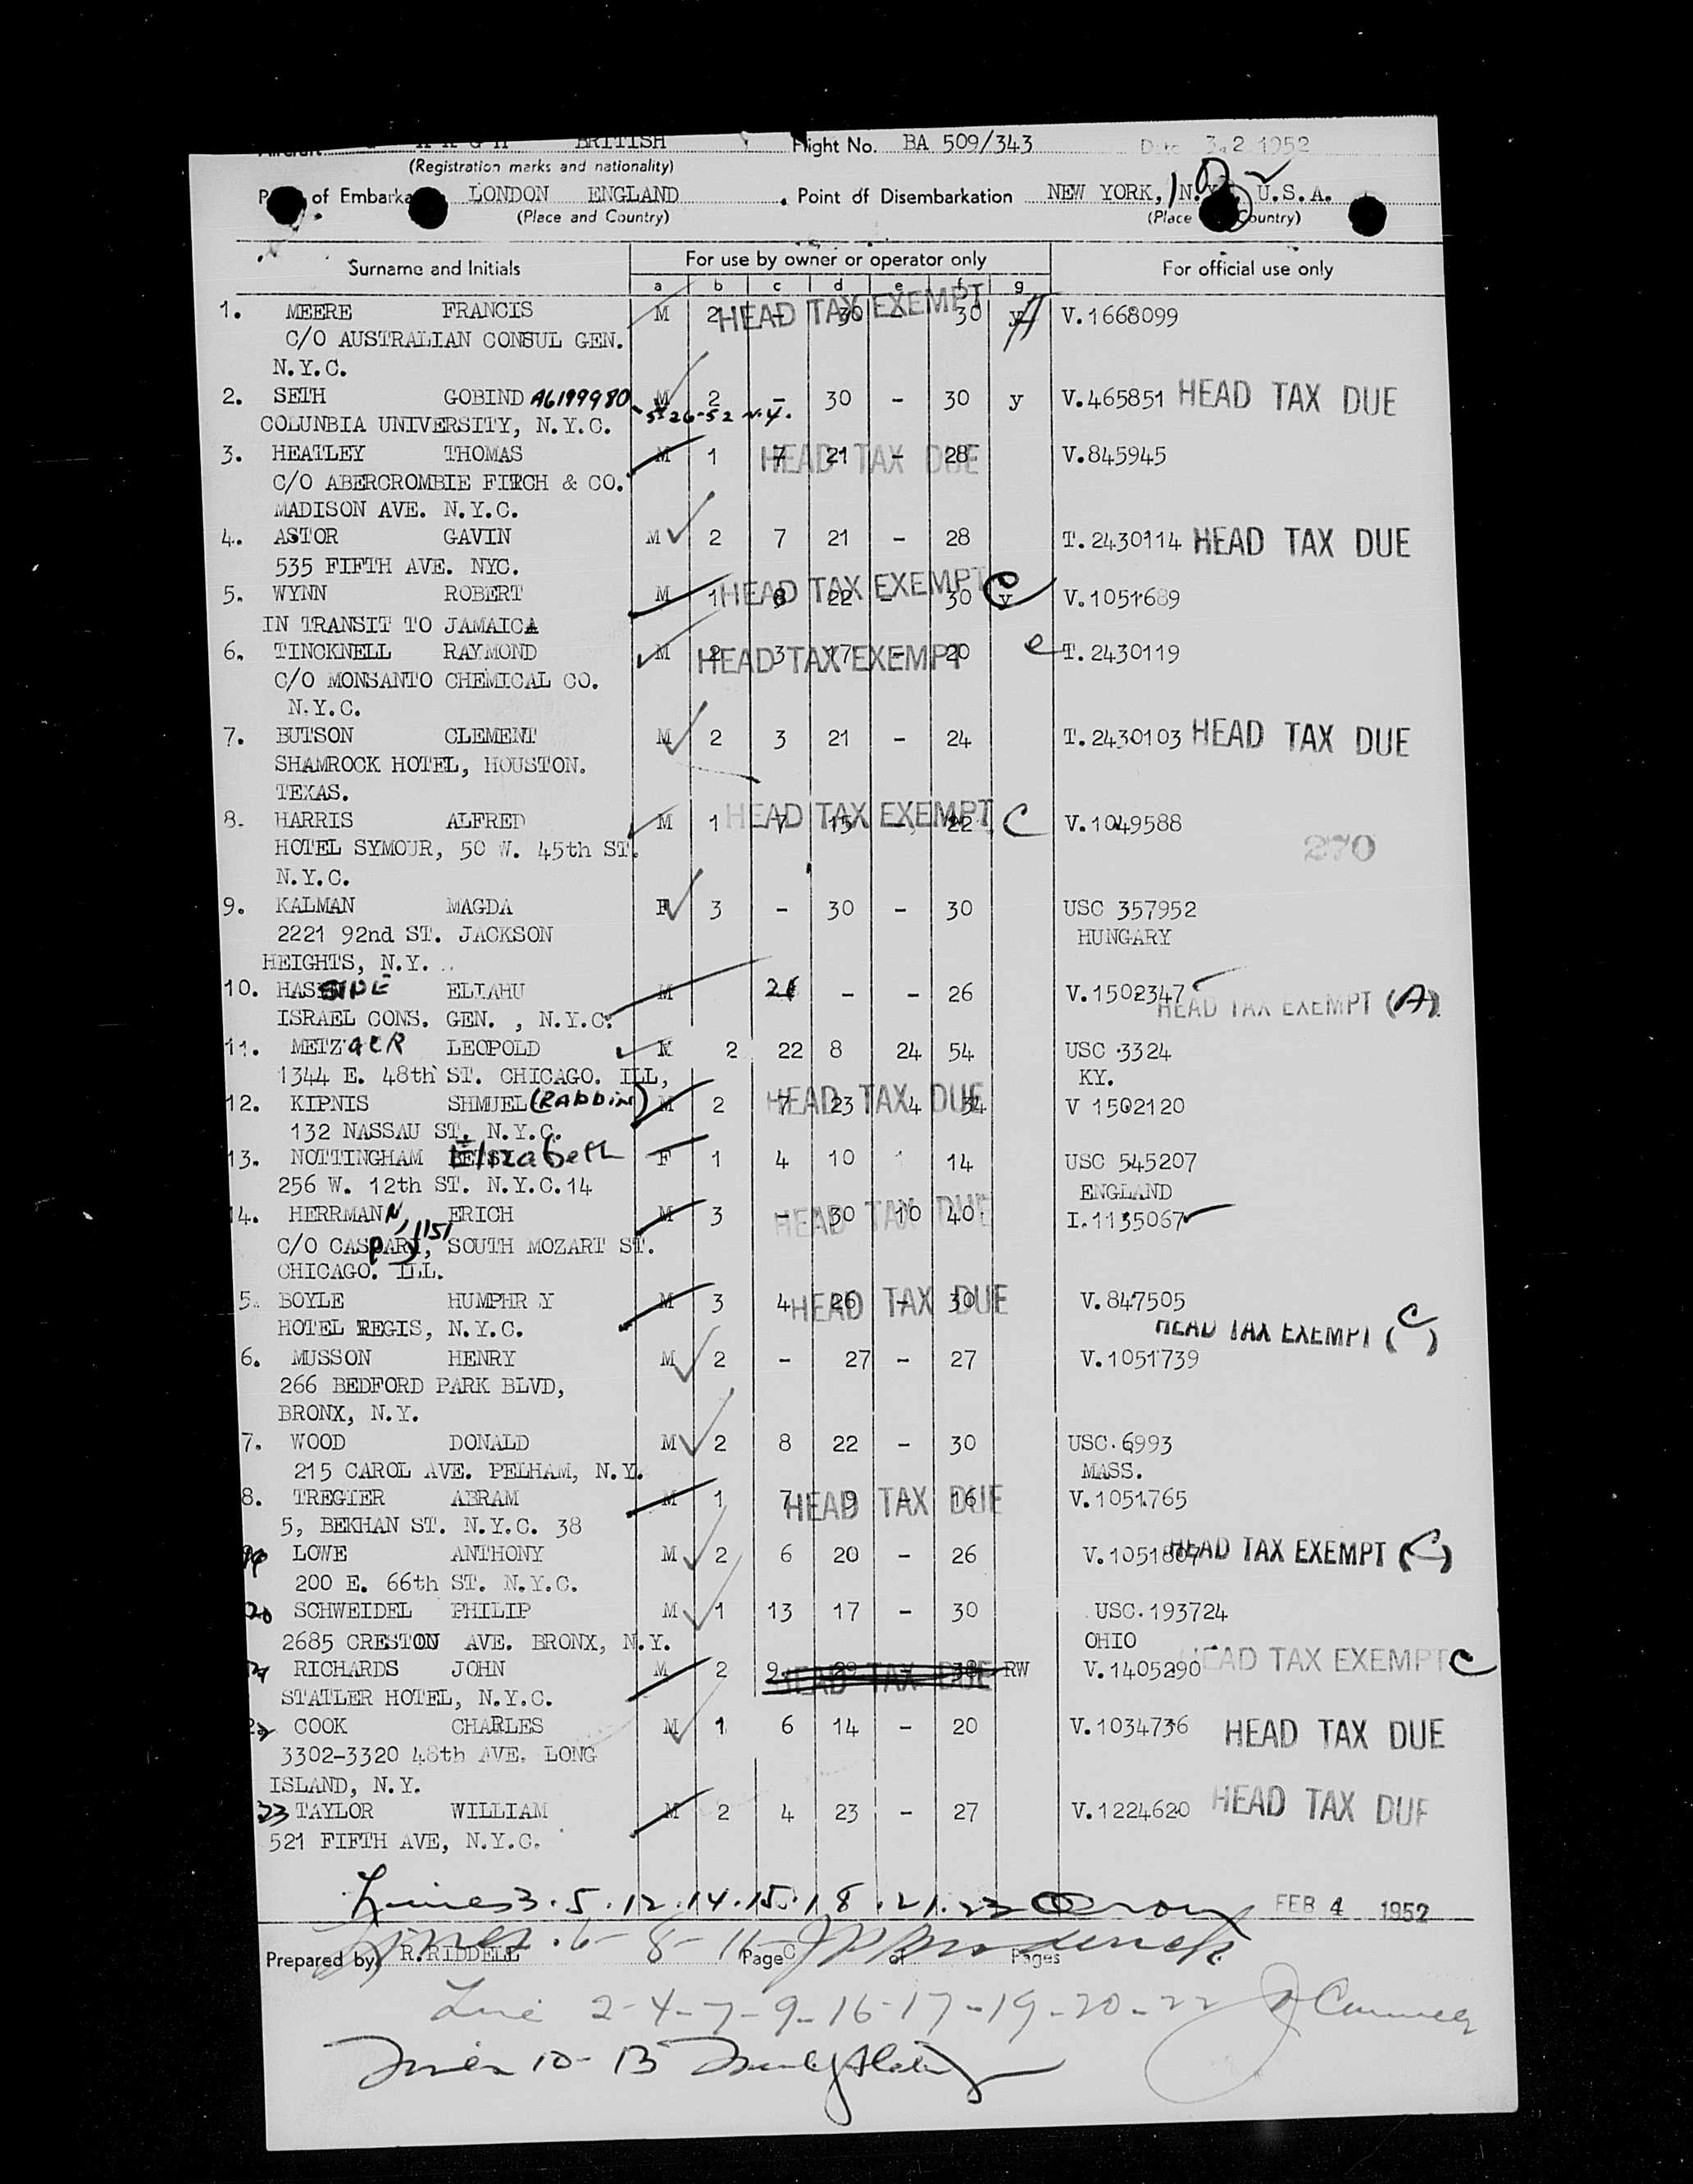 Aircraft BRITISH Flight No. BA 509/343 Date 3.2 1952
(Registration marks and nationality)
of Embarka LONDON ENGLAND Point of Disembarkation NEW YORK, N.Y. U.S.A.
(Place and Country) (Place Country)
Surname and Initials For use by owner or operator only For official use only
a b c d e f g
1. MEERE FRANCIS M 2 - 30 - 30 y V.1668099
HEAD TAX EXEMPT
C/O AUSTRALIAN CONSUL GEN.
N.Y.C.
2. SETH GOBIND A6199980 M 2 - 30 - 30 y V.465851 HEAD TAX DUE
COLUNBIA UNIVERSITY, N.Y.C. 5-26-52 N.Y.
3. HEATLEY THOMAS M 1 7 21 - 28 V.845945
HEAD TAX DUE
C/O ABERCROMBIE FITCH & CO.
MADISON AVE. N.Y.C.
4. ASTOR GAVIN M 2 7 21 - 28 T.2430114 HEAD TAX DUE
535 FIFTH AVE. NYC.
5. WYNN ROBERT M 1 8 22 - 30 y C V.1051689
HEAD TAX EXEMPT
IN TRANSIT TO JAMAICA
6. TINCKNELL RAYMOND M 2 3 17 - 20 e T.2430119
HEAD TAX EXEMPT
C/O MONSANTO CHEMICAL CO.
N.Y.C.
7. BUTSON CLEMENT M 2 3 21 - 24 T.2430103 HEAD TAX DUE
SHAMROCK HOTEL, HOUSTON.
TEXAS.
8. HARRIS ALFRED M 1 7 15 - 22 C V.1049588
HEAD TAX EXEMPT
HOTEL SYMOUR, 50 W. 45th ST. 270
N.Y.C.
9. KALMAN MAGDA F 3 - 30 - 30 USC 357952
2221 92nd ST. JACKSON HUNGARY
HEIGHTS, N.Y.
10. ELIAHU M 26 - - 26 V.1502347
HEAD TAX EXEMPT (A)
ISRAEL CONS. GEN. , N.Y.C.
11. METZgeR LEOPOLD M 2 22 8 24 54 USC 3324
1344 E. 48th ST. CHICAGO. ILL, KY.
12. KIPNIS SHMUEL (Rabbin) M 2 7 23 4 34 V 1502120
HEAD TAX DUE
132 NASSAU ST. N.Y.C.
13. NOTTINGHAM Elizabeth F 1 4 10 14 USC 545207
256 W. 12th ST. N.Y.C.14 ENGLAND
14. HERRMANN ERICH M 3 - 30 10 40 I.1135067
HEAD TAX DUE
C/O CASpARy, 1151 SOUTH MOZART ST.
CHICAGO. ILL.
5. BOYLE HUMPHR Y M 3 4 26 - 30 V.847505
HEAD TAX DUE
HOTEL REGIS, N.Y.C. HEAD TAX EXEMPT (C)
6. MUSSON HENRY M 2 - 27 - 27 V.1051739
266 BEDFORD PARK BLVD,
BRONX, N.Y.
7. WOOD DONALD M 2 8 22 - 30 USC.6993
215 CAROL AVE. PELHAM, N.Y. MASS.
8. TREGIER ABRAM M 1 7 9 - 16 V.1051765
HEAD TAX DUE
5, BEKHAN ST. N.Y.C. 38
19 LOWE ANTHONY M 2 6 20 - 26 V.1051867 HEAD TAX EXEMPT (C)
200 E. 66th ST. N.Y.C.
20 SCHWEIDEL PHILIP M 1 13 17 - 30 USC.193724
2685 CRESTON AVE. BRONX, N.Y. OHIO
21 RICHARDS JOHN M 2 9 29 - 38 RW V.1405290 HEAD TAX EXEMPT C
HEAD TAX DUE
STATLER HOTEL, N.Y.C.
22 COOK CHARLES M 1 6 14 - 20 V.1034736 HEAD TAX DUE
3302-3320 48th AVE. LONG
ISLAND, N.Y.
23 TAYLOR WILLIAM M 2 4 23 - 27 V.1224620 HEAD TAX DUE
521 FIFTH AVE, N.Y.C.
Lines 3.5.12.14.15.18.21.23 FEB 4 1952
Lines 6-8-11
Prepared by R.RIDDELL Page C of Pages
Line 2-4-7-9-16-17-19-20-22
Lines 10-13